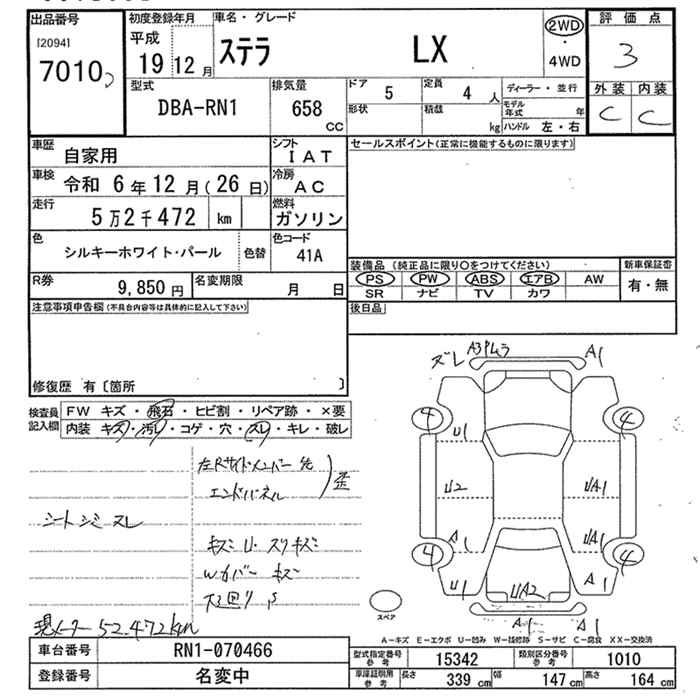 出品番号
[2094]
7010
初度登録年月
平成
19 12 月
車名・グレード
ステラ LX
2WD
・
4WD
評価点
3
外装 内装
C C
型式
DBA-RN1
排気量
658
CC
ドア 5
定員 4 人
形状
積載 kg
ディーラー・並行
モデル年式 年
ハンドル 左・右
車歴 自家用
シフト IAT
車検 令和 6年 12月(26日)
冷房 AC
走行 5万2千472 km
燃料 ガソリン
色 シルキーホワイト・パール
色替
色コード 41A
R券 9,850円
名変期限 月 日
セールスポイント(正常に機能するものに限ります)
装備品 (純正品に限り〇をつけてください)
PS PW ABS エアB AW
SR ナビ TV カワ
新車保証書
有・無
後日品
注意事項申告欄 (不具合内容等は具体的に記入して下さい)
修復歴 有〔箇所 〕
検査員記入欄
FW キズ・飛石・ヒビ割・リペア跡・×要
内装 キズ・汚レ・コゲ・穴・スレ・キレ・破レ
左Rサイドメンバー先
エンドパネル
歪
シートシミ スレ
キズ U スリキズ
Wカバー キズ
下廻り S
現メーター 52,472km
ズレ A3Pムラ A1
4 4
U1
U2 UA1
A1 UA1
4 4
U1 A1
UA2
A1 A1
スペア
A－キズ E－エクボ U－凹み W－補修跡 S－サビ C－腐食 XX－交換済
車台番号 RN1-070466
登録番号 名変中
型式指定番号 参考 15342
類別区分番号 参考 1010
車庫証明用 参考
長さ 339 cm
幅 147 cm
高さ 164 cm